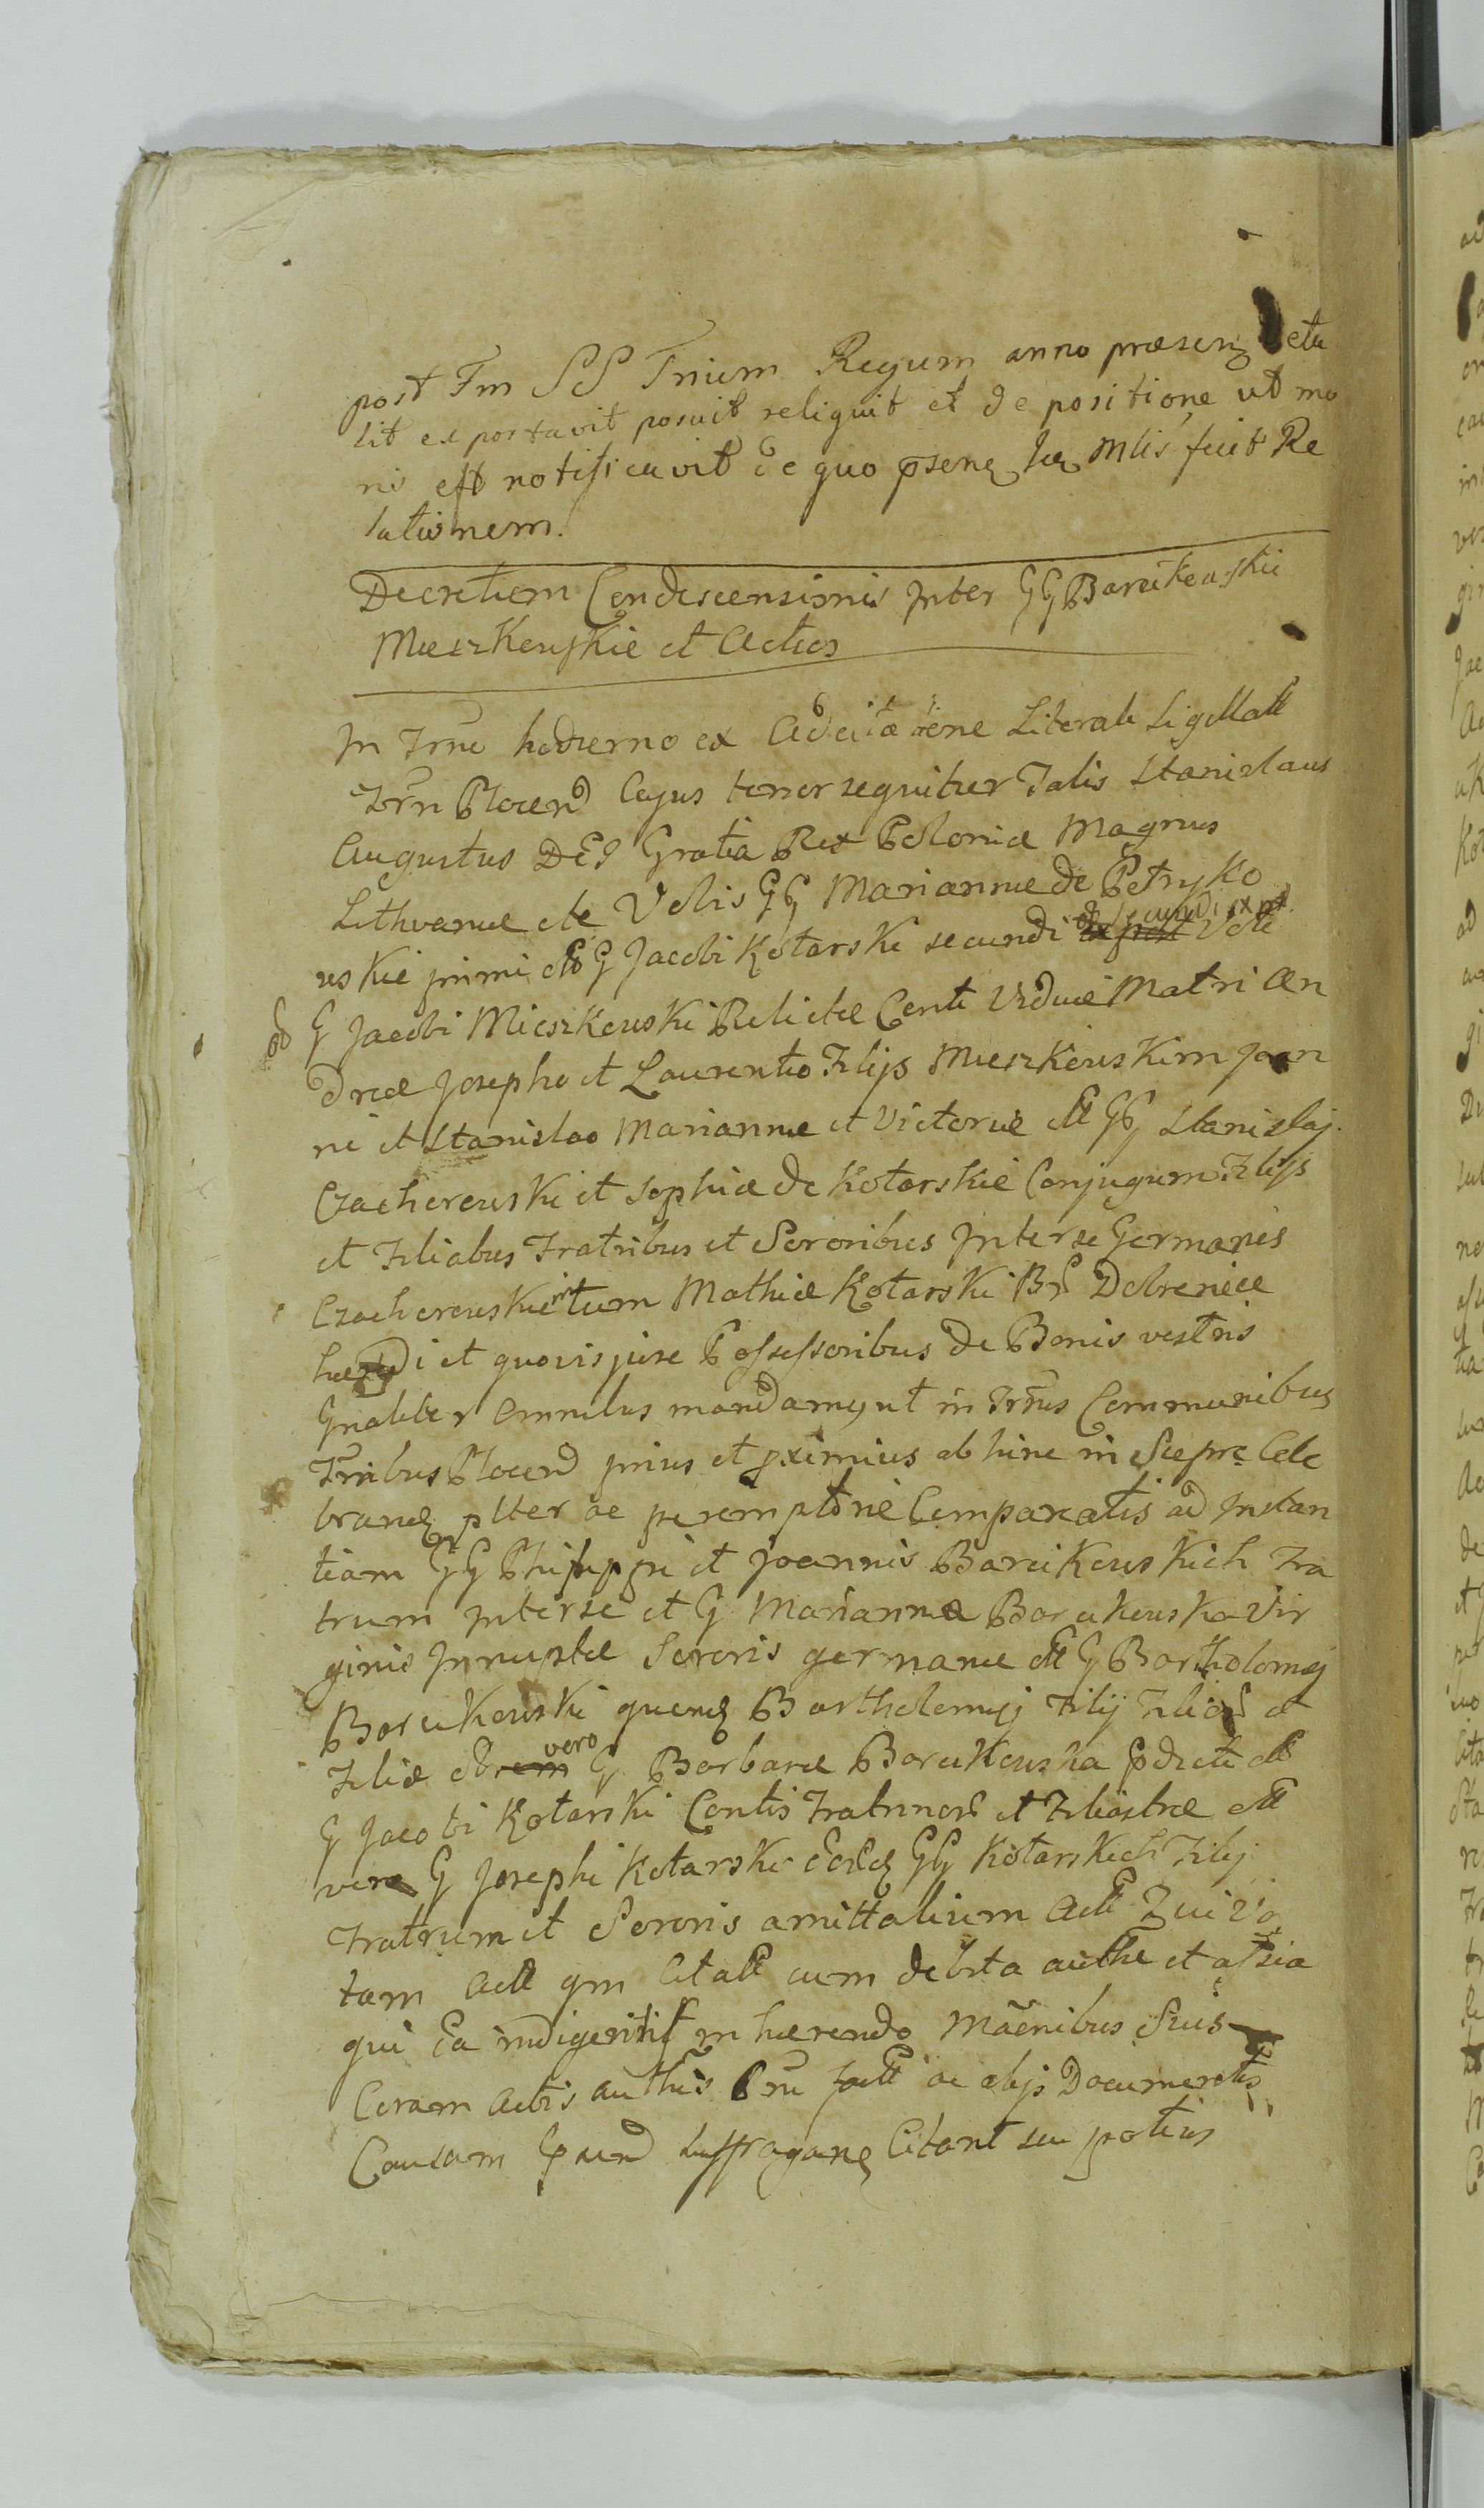 post Fm SS Trium Regum anno præsenz detu
lit exportavit posuit reliquit et de positione ut mo
ris est notificavit de quo psenz Jux Mlis fecit Re
lationem.
Decretum Condescensionis Inter GG Barcikowskie
Mieszkowskie et Actos
In Trno hodierno ex Literali Ligillatt
Trm Plocen Cujus tenor sequitur Talis Stanislaus
Augustus DEI Gratia Rex Poloniæ Magnus
Lithvaniæ etc Vobis GG Mariannæ de Petryko
wskie primi olo G Jacobi Kotarski secundi et secundi ex post Voti
G Jacobi Mieszkowski Relictæ Conti Viduæ Matri An
dreæ Josepho et Laurentio Filijs Mieszkowskim Joan
ni et Stanislao Mariannæ et Victoriæ olt GG Stanislaj
Czachorowski et Sophiæ de Kotarskie Conjugum Filijs
et Filiabus Fratribus et Sororibus Inter se Germanis
Czachorowskim tum Mathiæ Kotarski Br Dobrenice
hædi et quovis jure Possessoribus de Bonis vestris
Gnaliter omnibus mandamq ut in Trnis Communibus
Trribus Plocen prius et pximius ab hinc in Sciepre Cele
brandz plter ac peremptorie Comparatis ad Instan
tiam GG Philippi et Joannis Barcikowskich Fra
trum Inter se et G Mariannæ Barcikowska Vir
ginis Innuptæ Sororis germanæ olt G Bartholomej
Barcikowski quondz Bartholomej Filij Filior et
Filiæ vero G Barbaræ Barcikowska pdicti olt
G Jacobi Kotarski Contis Fratrinor et Filiastræ olt
vero G Josephi Kotarski GG Kotarskich Filij
Fratrum et Sororis amittalium Actt Qui Vos
tam Actt qm Citatt cum debita authe et
qui Ea indigent inhærendo Maonibus Suis
Coram Actis authis factt ac alijs Documentis
Causam suffraganz Citant seu potius